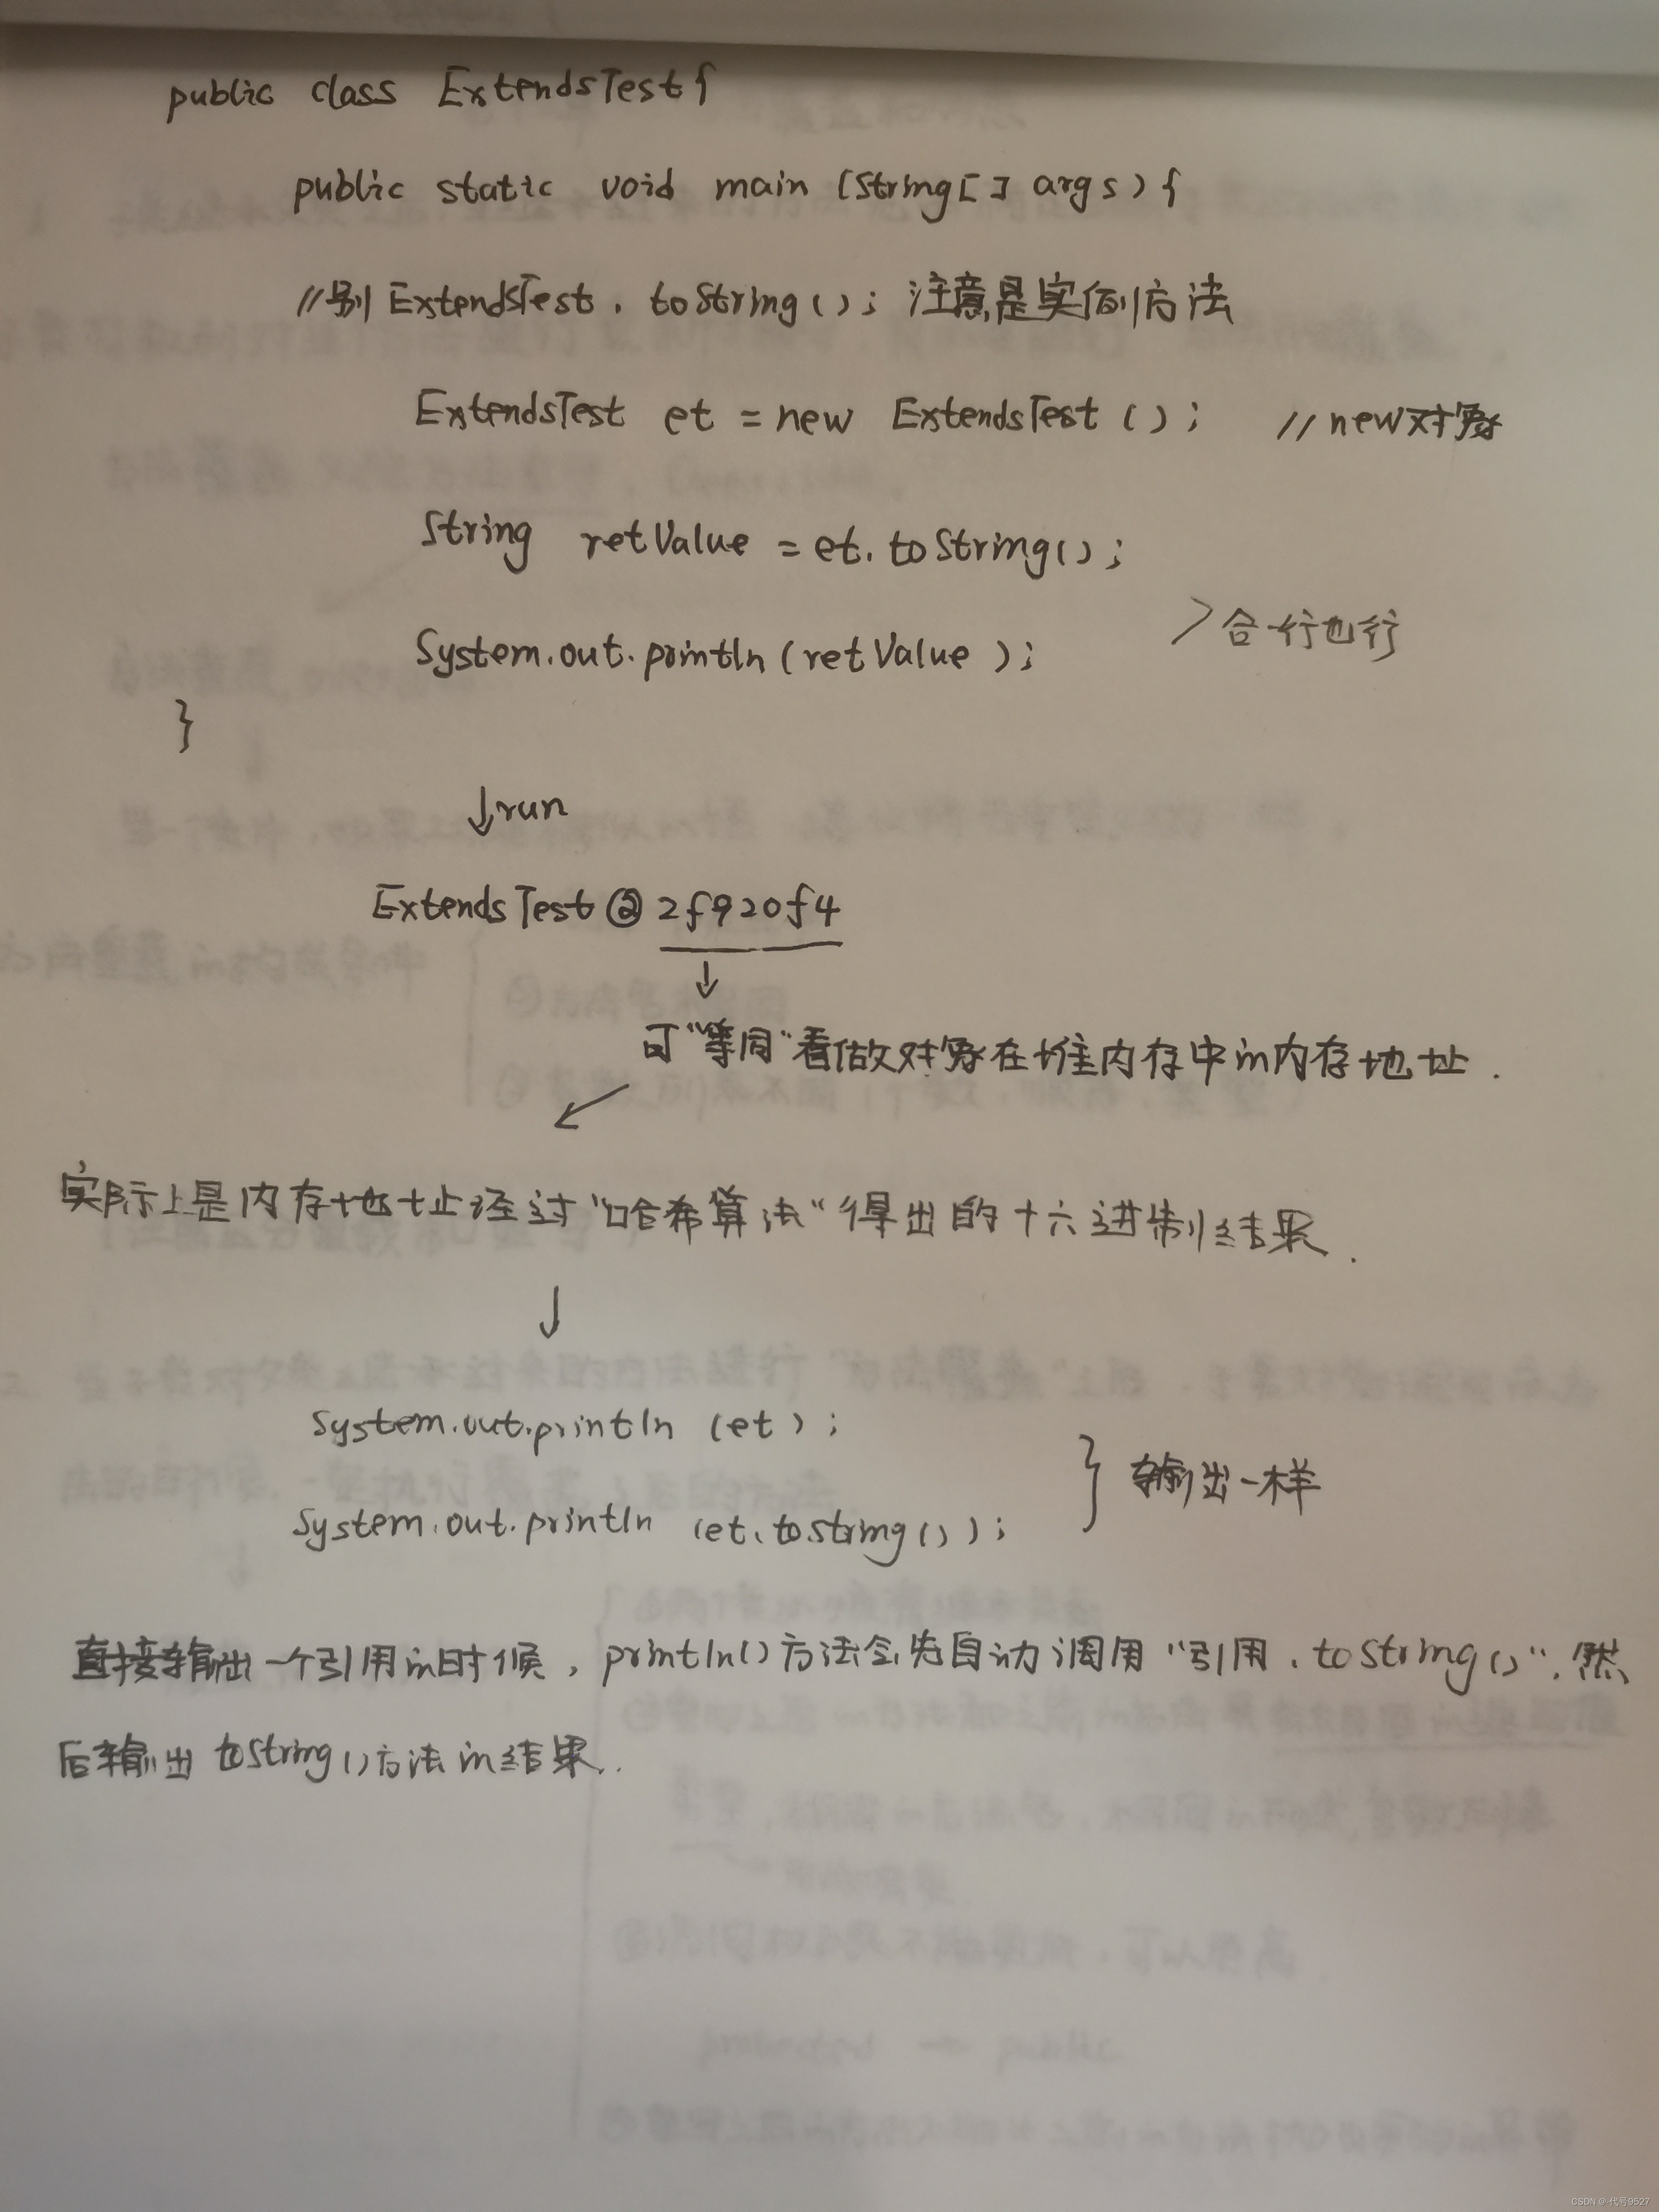 public class ExtendsTest{
public static void main (String[] args) {
//别 ExtendsTest. toString(); 注意是实例方法
ExtendsTest et = new ExtendsTest (); //new对象
String retValue = et. toString();
System.out.println (retValue );
>合一行也行
}
↓run
ExtendsTest @ 2f920f4
↓
可"等同"看做对象在堆内存中的内存地址.
实际上是内存地址经过"哈希算法"得出的十六进制结果.
↓
System.out.println (et);
System.out.println (et.toString());
} 输出一样
直接输出一个引用的时候, println()方法会先自动调用"引用. toString()", 然
后输出 toString()方法的结果.
CSDN @-代号9527